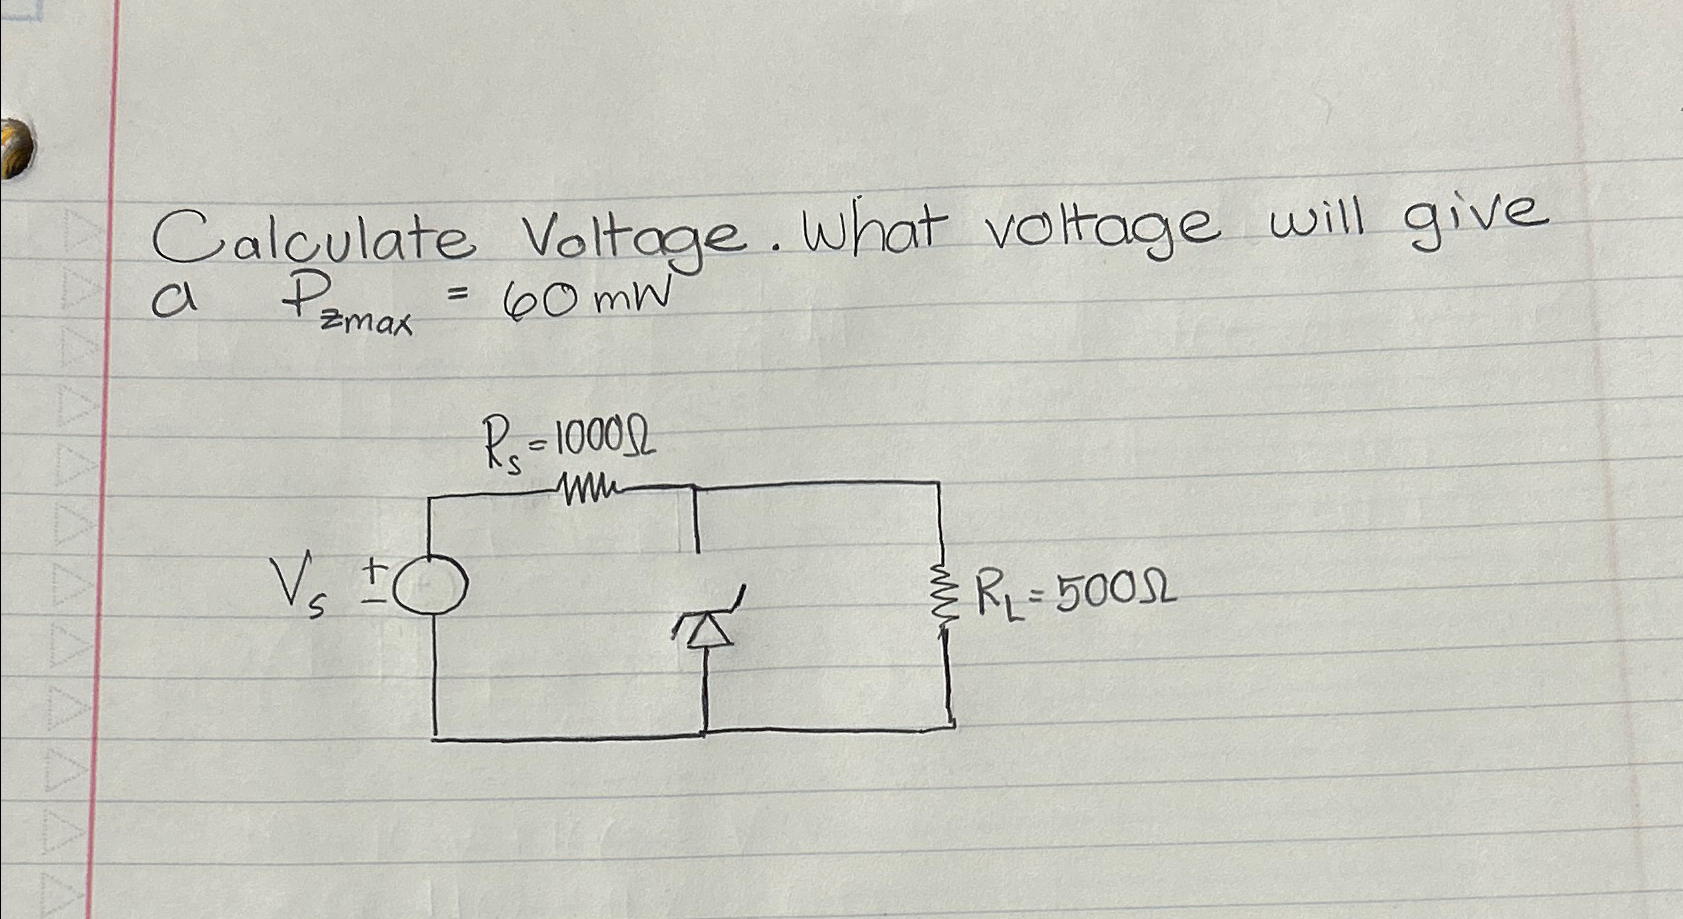 Calculate Voltage. What voltage will give
a Pzmax = 60 mW
Rs = 1000Ω
Vs +
−
RL = 500Ω